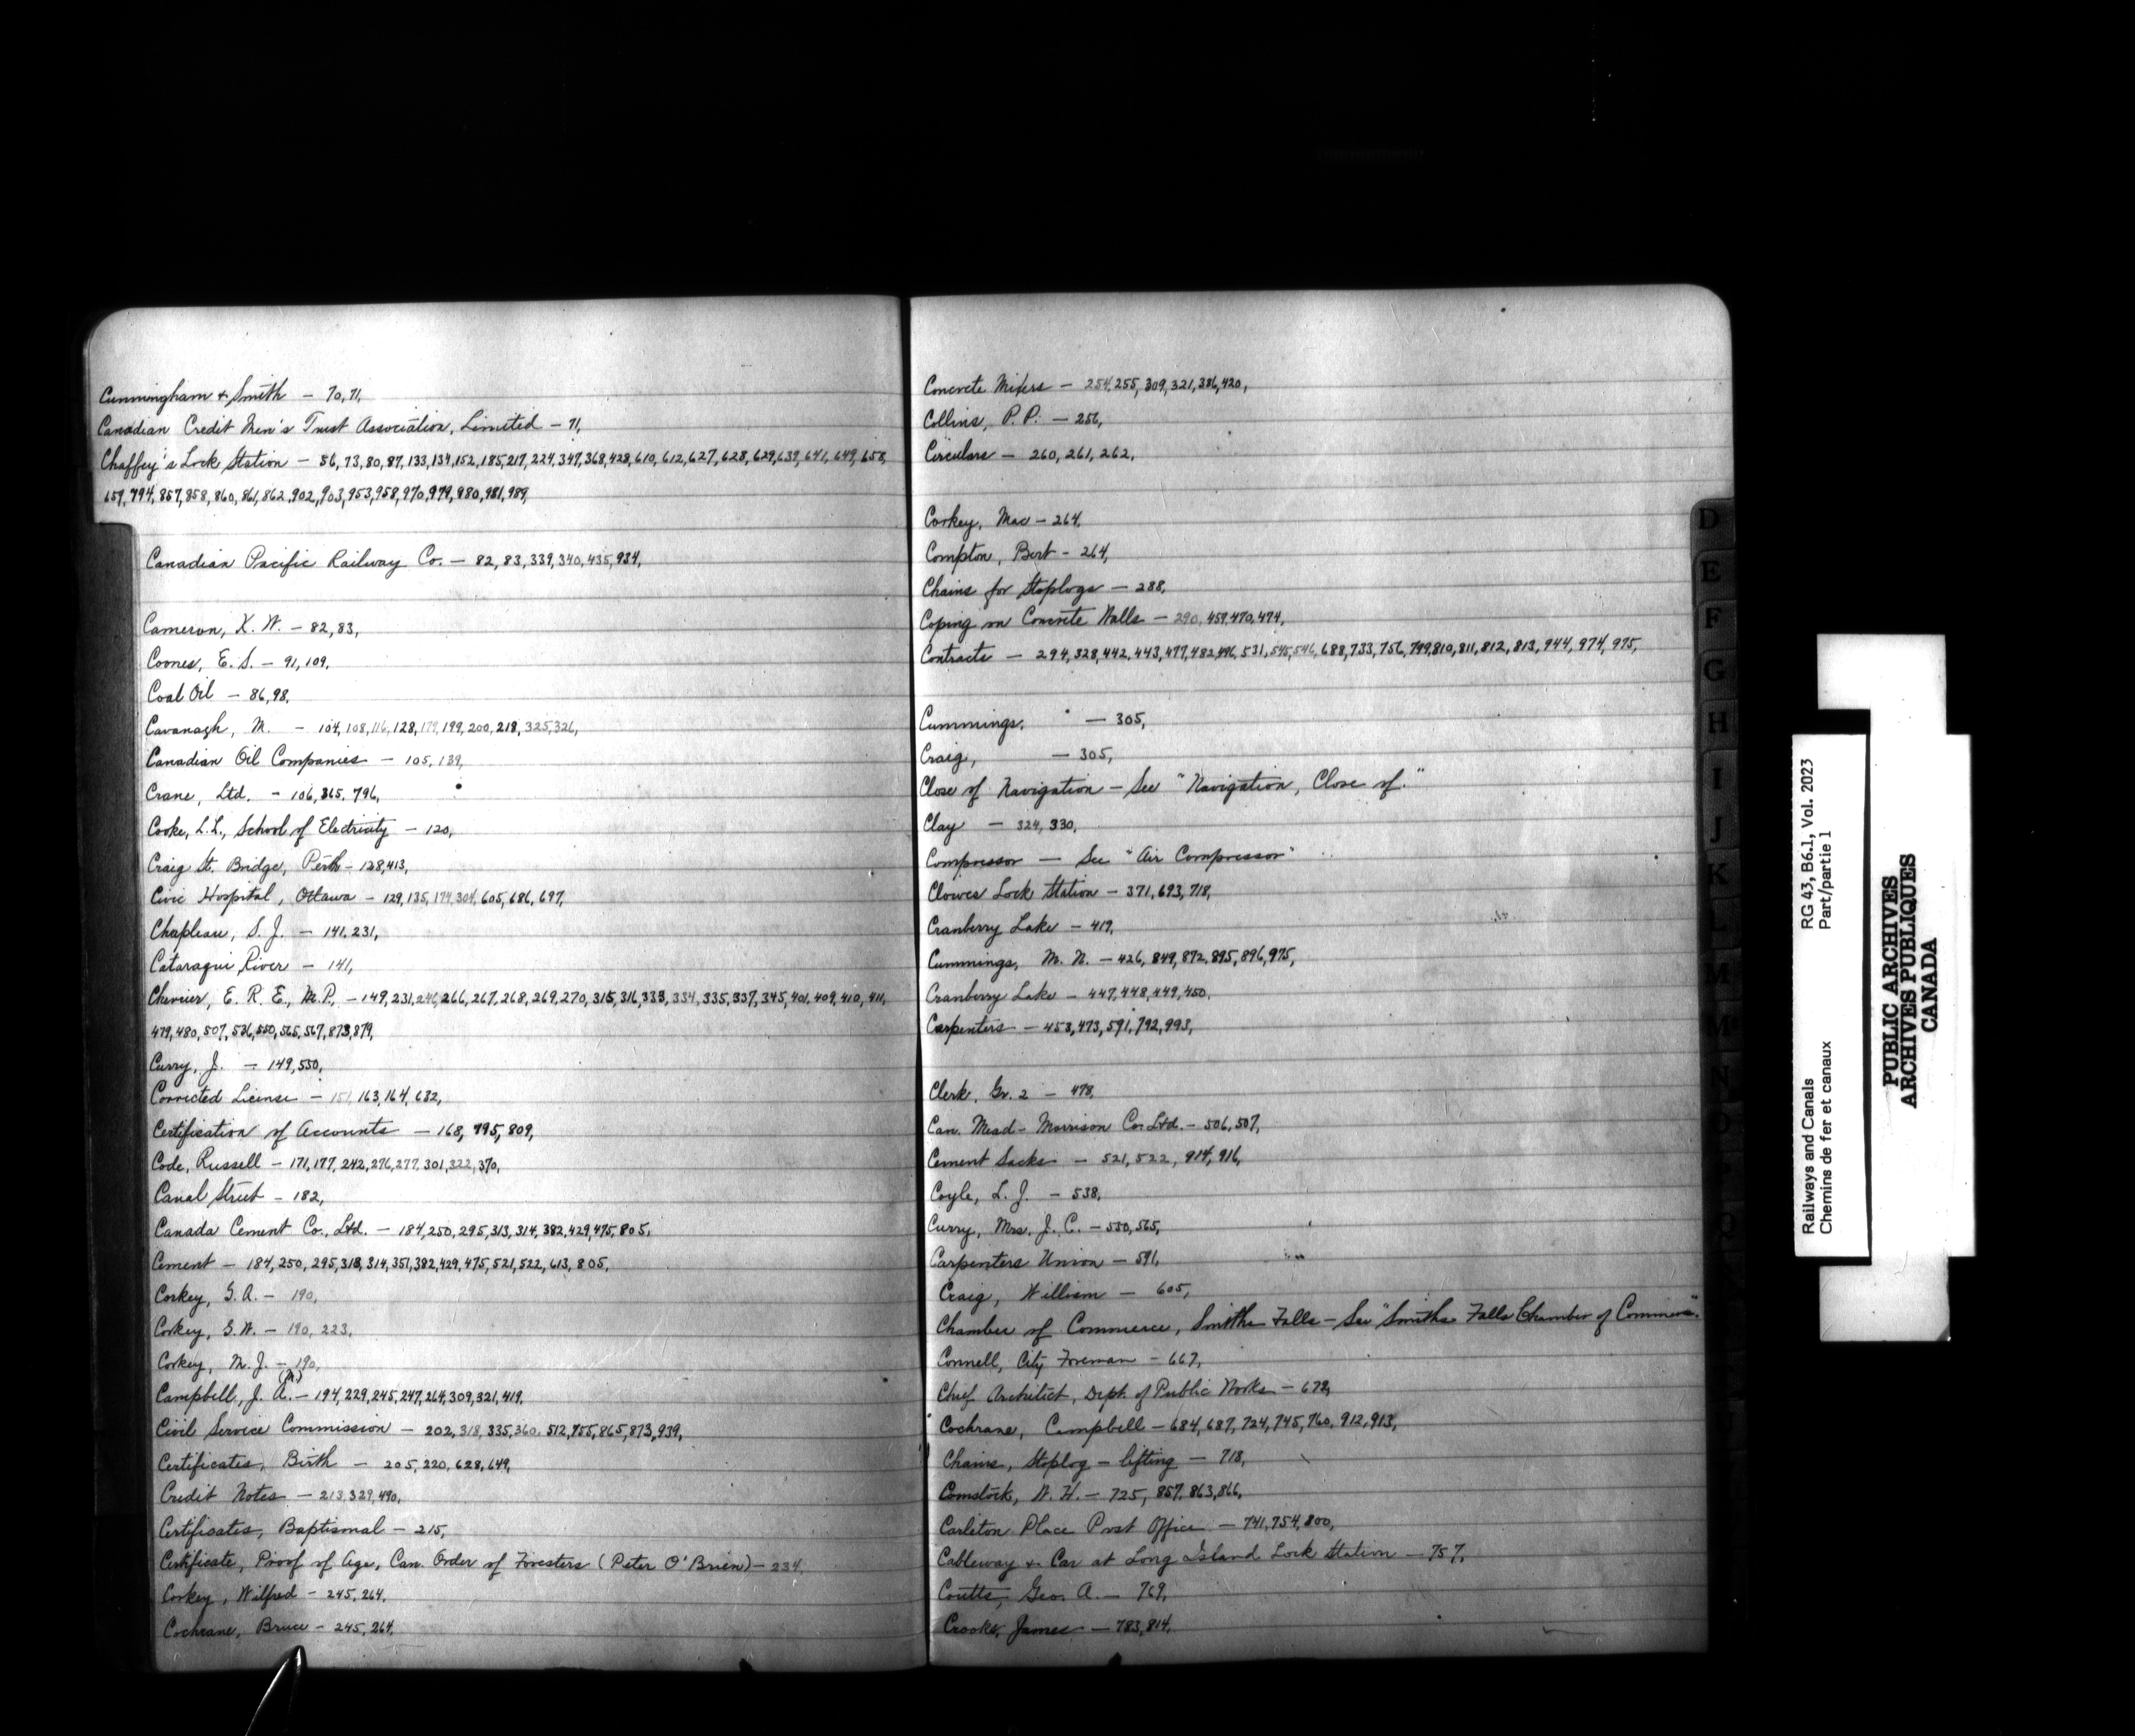 Cunningham & Smith — 70, 71,
Canadian Credit Men's Trust Association, Limited — 71,
Chaffey's Lock Station — 56, 73, 80, 87, 133, 134, 152, 185, 217, 224, 347, 368, 428, 610, 612, 627, 628, 629, 639, 641, 649, 658,
659, 794, 857, 858, 860, 861, 862, 902, 903, 953, 958, 970, 979, 980, 981, 989,
Canadian Pacific Railway Co. — 82, 83, 339, 340, 435, 934,
Cameron, K. W. — 82, 83,
Coones, E. S. — 91, 109,
Coal Oil — 86, 98,
Cavanagh, M. — 104, 108, 116, 128, 179, 199, 200, 218, 325, 326,
Canadian Oil Companies — 105, 139,
Crane, Ltd. — 106, 365, 796,
Cooke, L.L., School of Electricity — 120,
Craig St. Bridge, Perth — 128, 413,
Civic Hospital, Ottawa — 129, 135, 174, 304, 605, 686, 697,
Chapleau, S. J. — 141, 231,
Cataraqui River — 141,
Chevrier, E. R. E., M.P., — 149, 231, 246, 266, 267, 268, 269, 270, 315, 316, 333, 334, 335, 337, 345, 401, 409, 410, 411,
479, 480, 507, 536, 550, 565, 567, 873, 879,
Curry, J. — 149, 550,
Corrected License — 151, 163, 164, 632,
Certification of Accounts — 168, 795, 809,
Code, Russell — 171, 177, 242, 276, 277, 301, 322, 370,
Canal Street — 182,
Canada Cement Co., Ltd. — 184, 250, 295, 313, 314, 382, 429, 475, 805,
Cement — 184, 250, 295, 313, 314, 351, 382, 429, 475, 521, 522, 613, 805,
Corkey, G. A. — 190,
Corkey, G. W. — 190, 223,
Corkey, M. J. — 190,
(M)
Campbell, J. A. — 194, 229, 245, 247, 264, 309, 321, 419,
Civil Service Commission — 202, 318, 335, 360, 512, 755, 865, 873, 939,
Certificates, Birth — 205, 220, 628, 649,
Credit Notes — 213, 329, 490,
Certificates, Baptismal — 215,
Certificate, Proof of Age, Can. Order of Foresters (Peter O'Brien) — 234,
Corkey, Wilfred — 245, 264,
Cochrane, Bruce — 245, 264,
Concrete Mixers — 254, 255, 309, 321, 386, 420,
Collins, P. P. — 256,
Circulars — 260, 261, 262,
Corkey, Mac — 264,
Compton, Bert — 264,
Chains for Stoplogs — 288,
Coping on Concrete Walls — 290, 459, 470, 474,
Contracts — 294, 328, 442, 443, 477, 482, 496, 531, 545, 546, 688, 733, 756, 799, 810, 811, 812, 813, 944, 974, 975,
Cummings, — 305,
Craig, — 305,
Close of Navigation — See "Navigation, Close of."
Clay — 324, 330,
Compressor — See "Air Compressor"
Clowes Lock Station — 371, 693, 718,
Cranberry Lake — 419,
Cummings, M. N. — 426, 849, 872, 895, 896, 975,
Cranberry Lake — 447, 448, 449, 450,
Carpenters — 453, 473, 591, 792, 993,
Clerk, Gr. 2 — 478,
Can. Mead-Morrison Co. Ltd. — 506, 507,
Cement Sacks — 521, 522, 914, 916,
Coyle, L. J. — 538,
Curry, Mrs. J. C. — 550, 565,
Carpenters Union — 591,
Craig, William — 605,
Chamber of Commerce, Smiths Falls — See "Smiths Falls Chamber of Commerce".
Connell, City Foreman — 667,
Chief Architect, Dept. of Public Works — 672,
Cochrane, Campbell — 684, 687, 724, 745, 760, 912, 913,
Chains, Stoplog-lifting — 718,
Comstock, W. H. — 725, 857, 863, 866,
Carleton Place Post Office — 741, 754, 800,
Cableway & Car at Long Island Lock Station — 757,
Coutts, Geo. A. — 769,
Crooks, James — 783, 814,
D
E
F
G
H
I
J
K
L
M
N
O
Q
Railways and Canals
Chemins de fer et canaux
RG 43, B6.1, Vol. 2023
Part/partie 1
PUBLIC ARCHIVES
ARCHIVES PUBLIQUES
CANADA